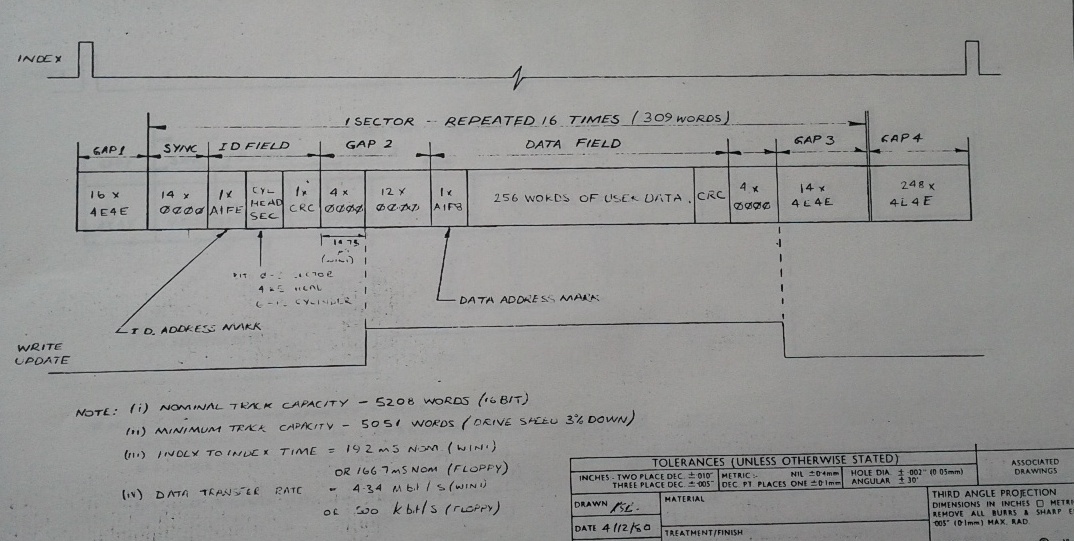 INDEX
1 SECTOR - REPEATED 16 TIMES (309 WORDS)
GAP1 SYNC ID FIELD GAP 2 DATA FIELD GAP 3 GAP 4
16 x 4E4E
14 x 0000
1x A1FE
CYL HEAD SEC
1x CRC
4 x 0000
12 x 0000
1x A1F8
256 WORDS OF USER DATA.
CRC
4 x 0000
14 x 4E4E
248 x 4E4E
(WINI)
DATA ADDRESS MARK
I.D. ADDRESS MARK
WRITE
UPDATE
NOTE: (i) NOMINAL TRACK CAPACITY - 5208 WORDS (16 BIT)
(ii) MINIMUM TRACK CAPACITY - 5051 WORDS (DRIVE SPEED 3% DOWN)
(iii) INDEX TO INDEX TIME = 19.2 mS NOM (WINI)
OR 166.7mS NOM (FLOPPY)
(iv) DATA TRANSFER RATE = 4.34 Mbit/S (WINI)
OR 500 kbit/S (FLOPPY)
TOLERANCES (UNLESS OTHERWISE STATED)
INCHES - TWO PLACE DEC. ±·010" METRIC:- NIL ±0·4mm HOLE DIA. ±·002" (0·05mm)
THREE PLACE DEC. ±·005" DEC. PT PLACES ONE ±0·1mm ANGULAR ±30'
ASSOCIATED
DRAWINGS
DRAWN
MATERIAL
DATE 4/12/80
TREATMENT/FINISH
THIRD ANGLE PROJECTION
DIMENSIONS IN INCHES
REMOVE ALL BURRS & SHARP
·005" (0·1mm) MAX. RAD.